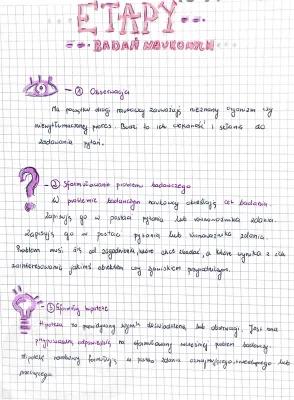 ETAPY
BADAŃ NAUKOWYCH
① Obserwacja
Na początku drogi naukowcy zauważają nieznany organizm czy
niewytłumaczony proces. Budzi to ich ciekawość i skłania do
zadawania pytań.
② Sformułowanie problemu badawczego
W problemie badawczym naukowcy określają cel badania
Zapisują go w postaci pytania lub równoważnika zdania.
Zapisują go w postaci pytania lub równoważnika zdania.
Problem musi się od zagadnienia, które chce zbadać, a które wynika z
zainteresowania jakimś obiektem czy zjawiskiem przyrodniczym.
③ hipotezy
Hipoteza to przewidywany wynik doświadczenia lub obserwacji. Jest ona
przypuszczalną odpowiedzią na sformułowany wcześniej problem badawczy.
Hipotezę naukowcy formułują w postaci zdania oznajmującego, twierdzącego lub
przeczącego.